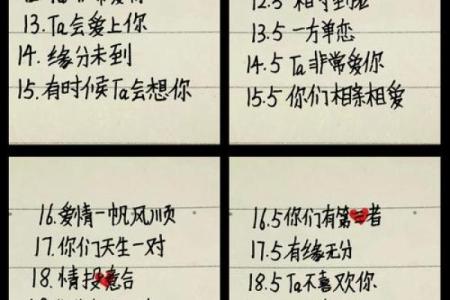 13.Ta会爱上你
14.缘分未到
15.有时候Ta会想你
13.5一方单恋
14.5 Ta非常爱你
15.5你们相亲相爱
16.爱情一帆风顺
17.你们天生一对
18.情投意合
16.5你们有第三者
17.5有缘无分
18.5Ta不喜欢你